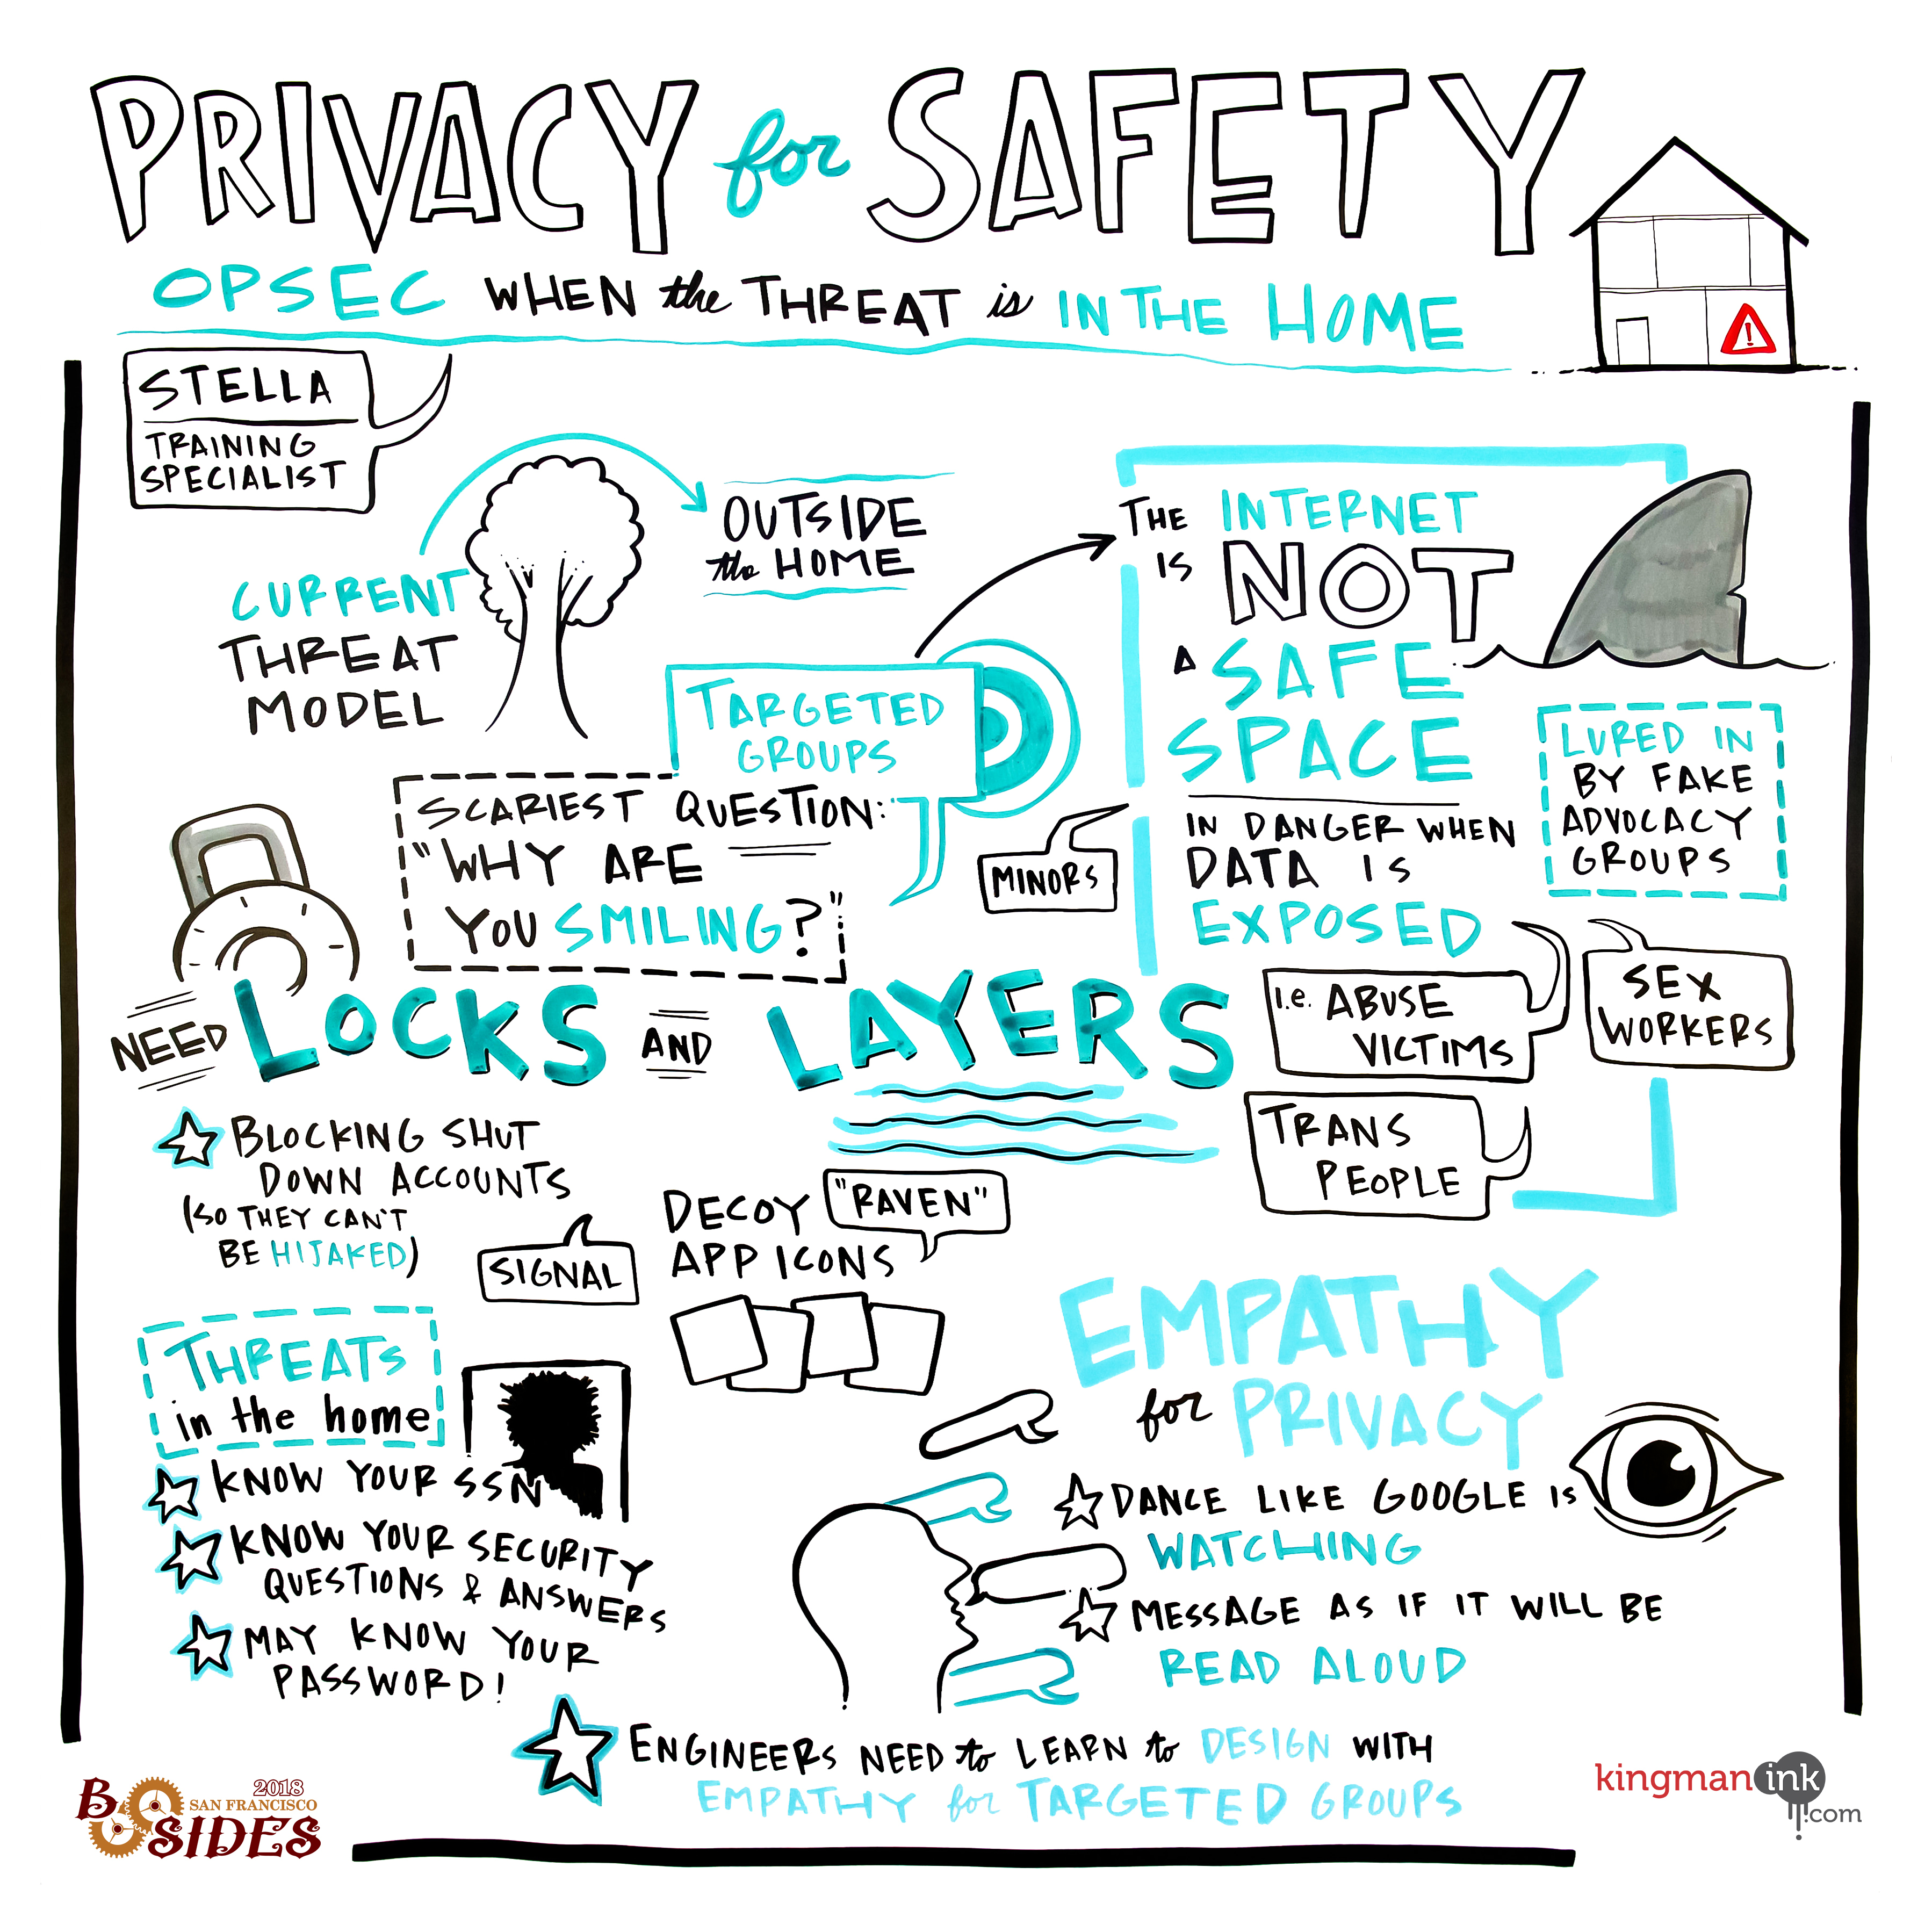 PRIVACY for SAFETY
OPSEC WHEN the THREAT is IN THE HOME
STELLA
TRAINING
SPECIALIST
CURRENT
THREAT
MODEL
OUTSIDE
the HOME
TARGETED
GROUPS
SCARIEST QUESTION:
"WHY ARE
YOU SMILING?"
THE INTERNET
IS NOT
A SAFE
SPACE
IN DANGER WHEN
DATA IS
EXPOSED
MINORS
LURED IN
BY FAKE
ADVOCACY
GROUPS
i.e. ABUSE
VICTIMS
SEX
WORKERS
TRANS
PEOPLE
NEED LOCKS AND LAYERS
BLOCKING SHUT
DOWN ACCOUNTS
(SO THEY CAN'T
BE HIJAKED)
SIGNAL
DECOY "RAVEN"
APP ICONS
THREATS
in the home
KNOW YOUR SSN
KNOW YOUR SECURITY
QUESTIONS & ANSWERS
MAY KNOW YOUR
PASSWORD!
EMPATHY
for PRIVACY
DANCE LIKE GOOGLE IS
WATCHING
MESSAGE AS IF IT WILL BE
READ ALOUD
ENGINEERS NEED to LEARN to DESIGN WITH
EMPATHY for TARGETED GROUPS
2018
B SAN FRANCISCO
SIDES
kingman ink
.com